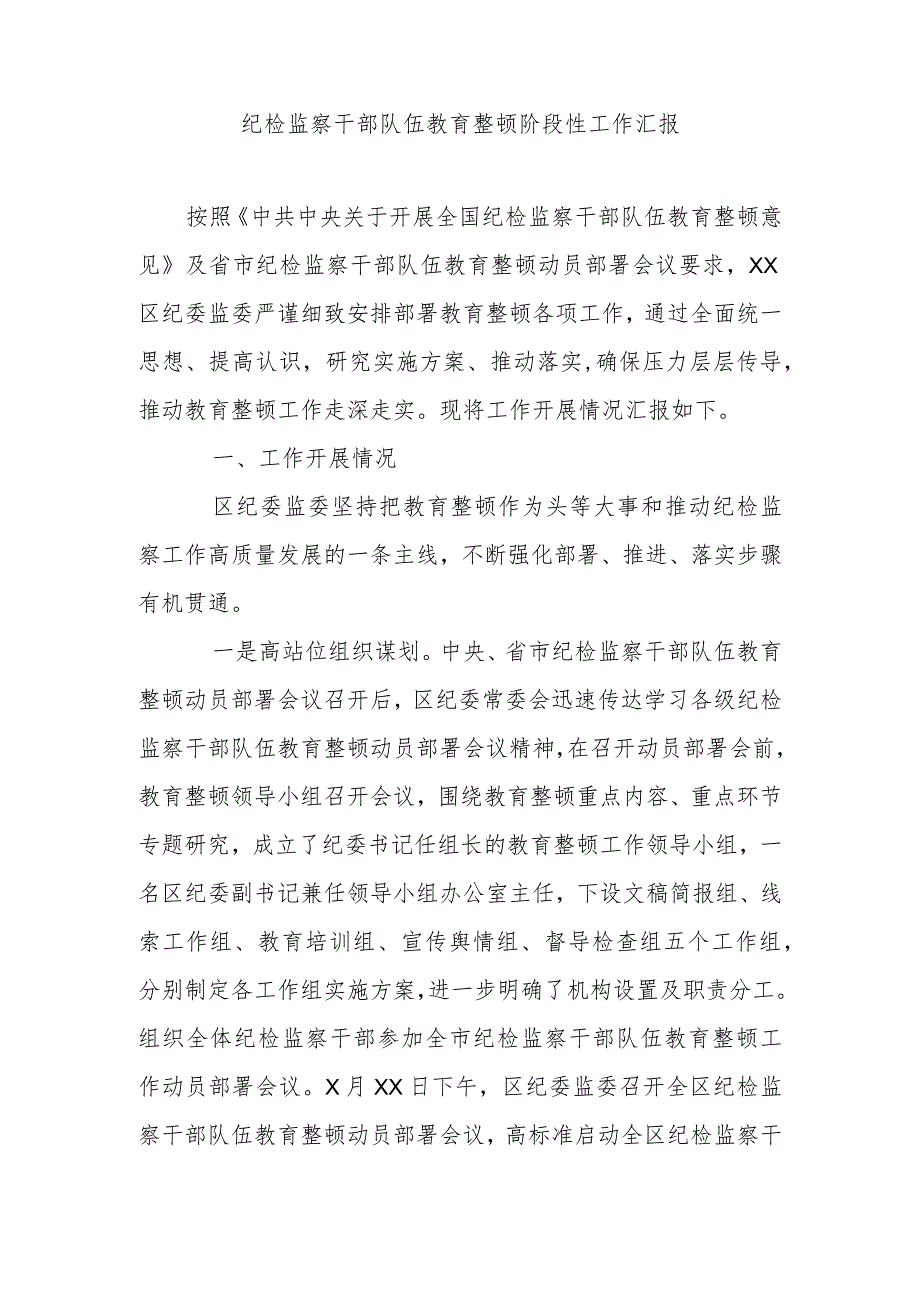 纪检监察干部队伍教育整顿阶段性工作汇报
按照《中共中央关于开展全国纪检监察干部队伍教育整顿意
见》及省市纪检监察干部队伍教育整顿动员部署会议要求，XX
区纪委监委严谨细致安排部署教育整顿各项工作，通过全面统一
思想、提高认识，研究实施方案、推动落实,确保压力层层传导，
推动教育整顿工作走深走实。现将工作开展情况汇报如下。
一、工作开展情况
区纪委监委坚持把教育整顿作为头等大事和推动纪检监
察工作高质量发展的一条主线，不断强化部署、推进、落实步骤
有机贯通。
一是高站位组织谋划。中央、省市纪检监察干部队伍教育
整顿动员部署会议召开后，区纪委常委会迅速传达学习各级纪检
监察干部队伍教育整顿动员部署会议精神，在召开动员部署会前，
教育整顿领导小组召开会议，围绕教育整顿重点内容、重点环节
专题研究，成立了纪委书记任组长的教育整顿工作领导小组，一
名区纪委副书记兼任领导小组办公室主任，下设文稿简报组、线
索工作组、教育培训组、宣传舆情组、督导检查组五个工作组，
分别制定各工作组实施方案，进一步明确了机构设置及职责分工。
组织全体纪检监察干部参加全市纪检监察干部队伍教育整顿工
作动员部署会议。X月XX日下午，区纪委监委召开全区纪检监
察干部队伍教育整顿动员部署会议，高标准启动全区纪检监察干